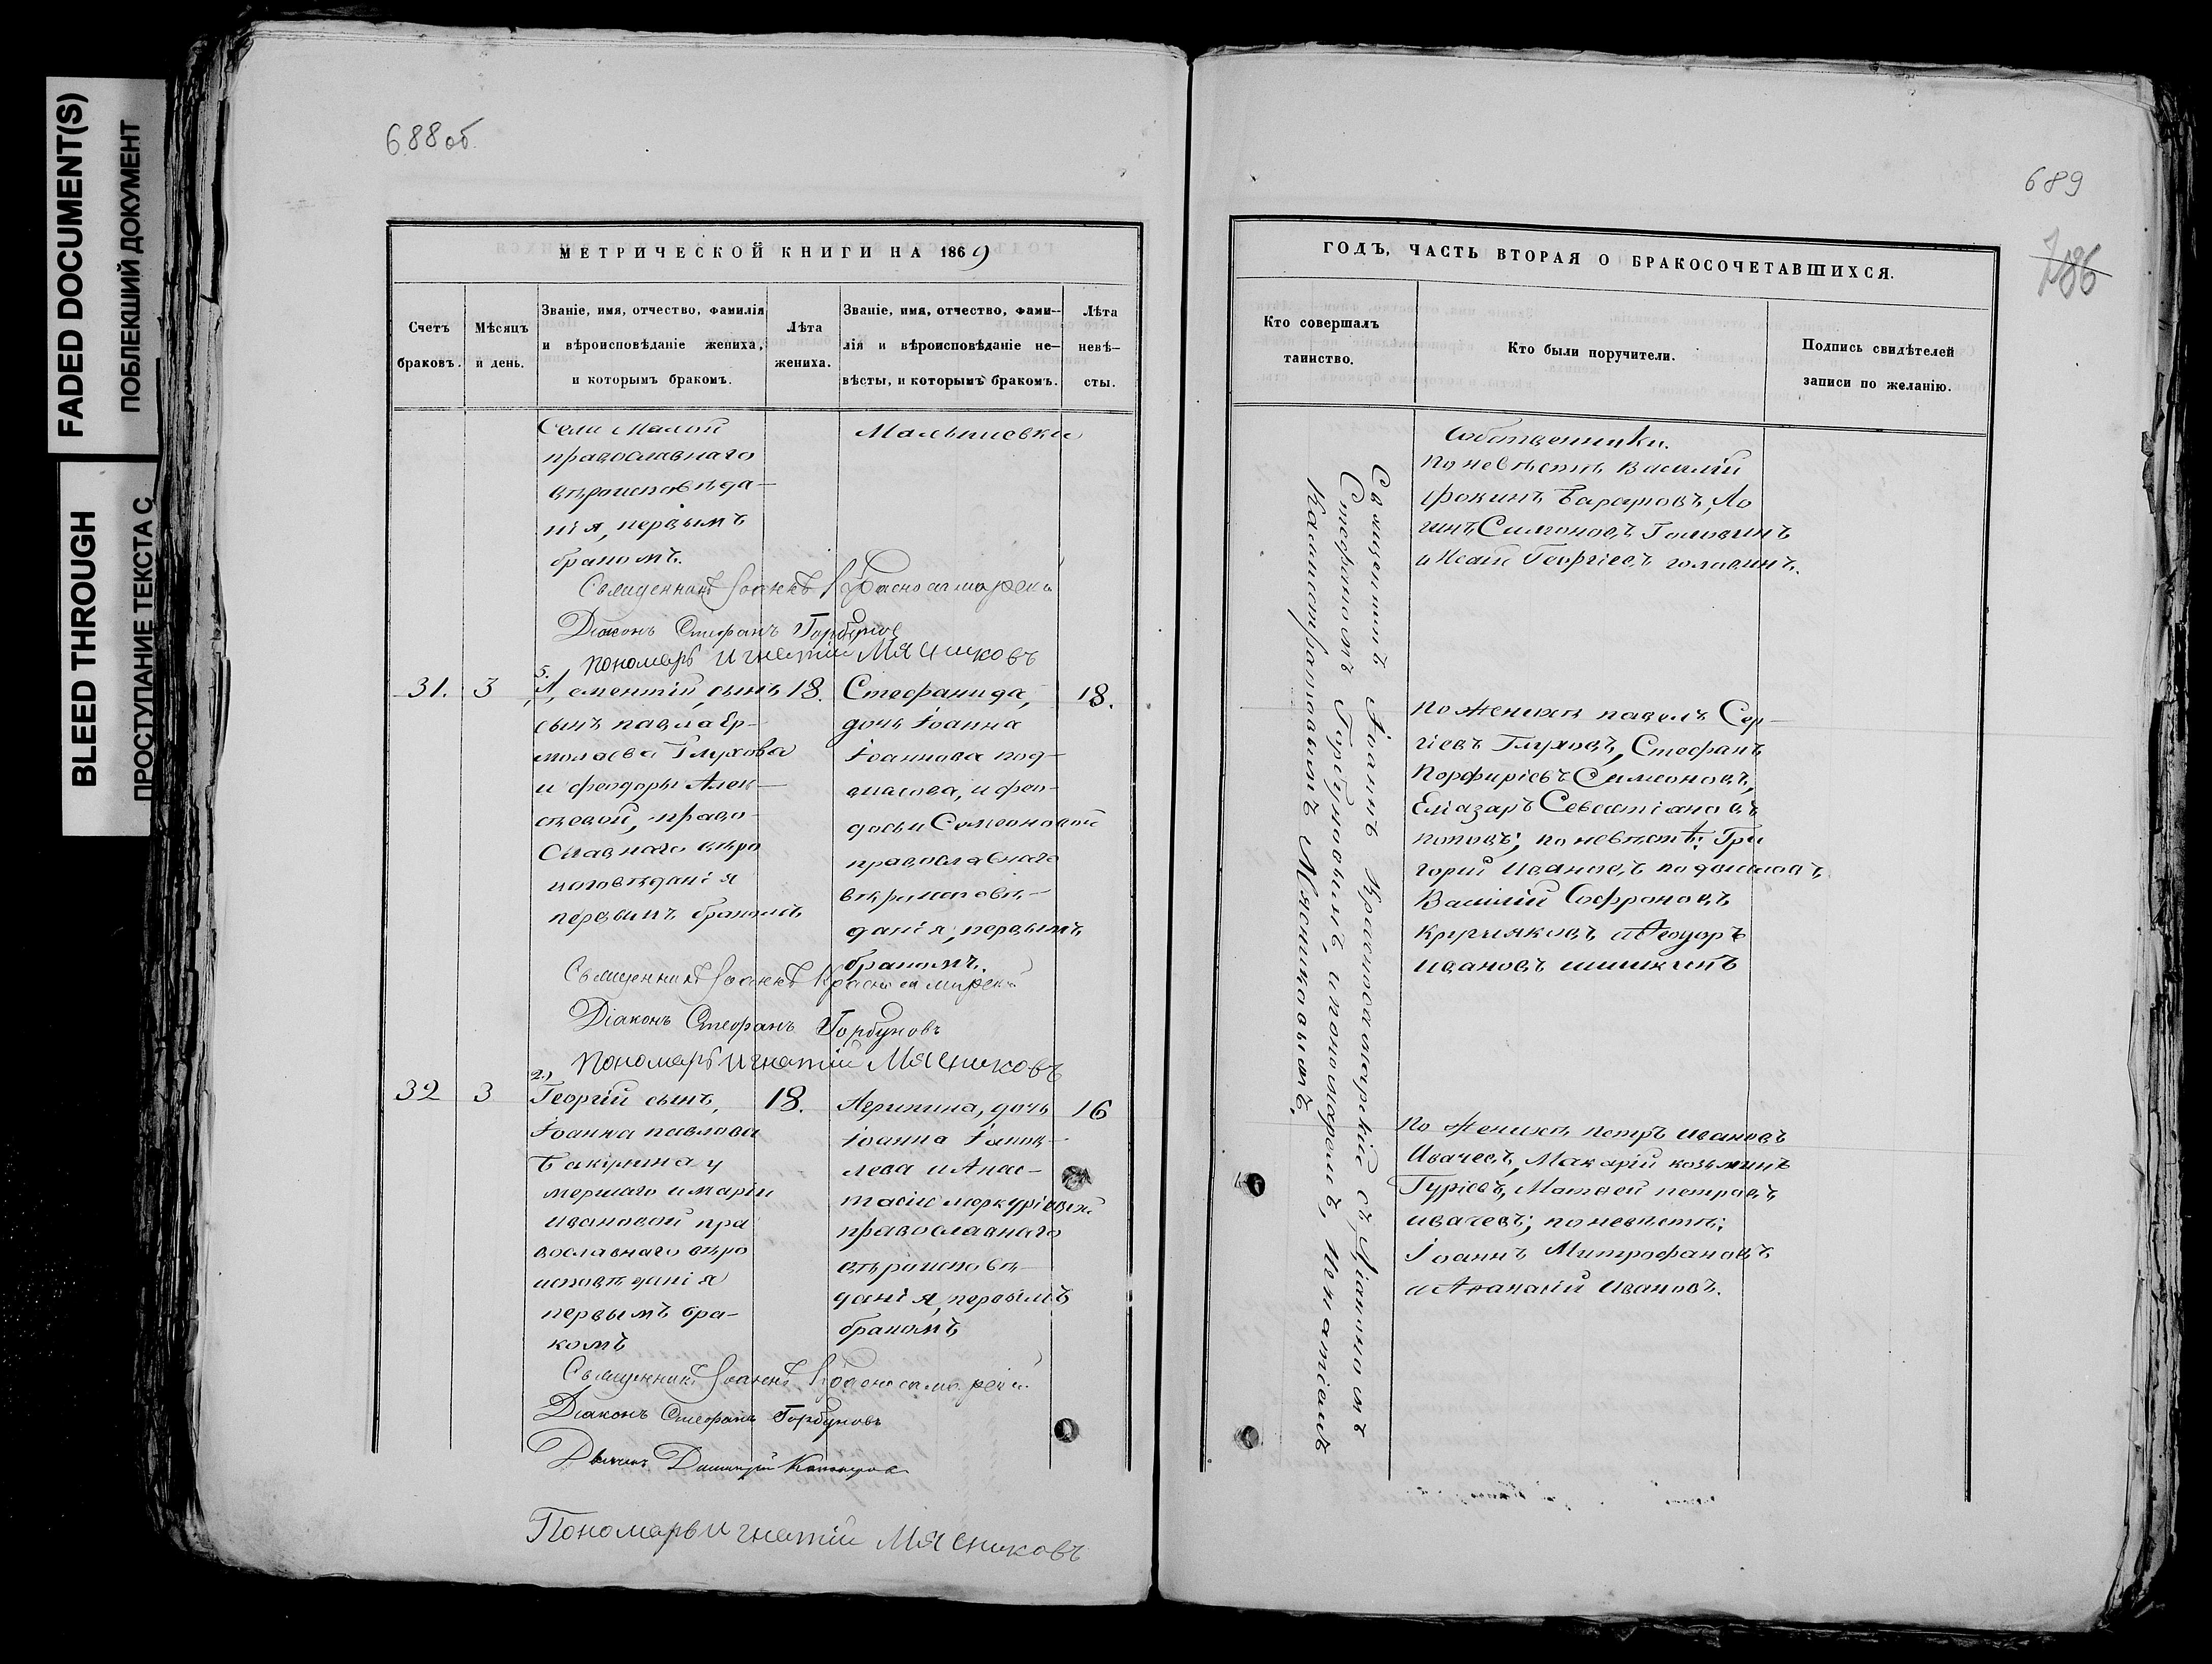 FADED DOCUMENT(S)
ПОБЛЕКШИЙ ДОКУМЕНТ
BLEED THROUGH
ПРОСТУПАНИЕ ТЕКСТА С
688 об.
МЕТРИЧЕСКОЙ КНИГИ НА 1869
Счетъ браковъ.
Мѣсяцъ и день.
Званіе, имя, отчество, фамилія
и вѣроисповѣданіе жениха,
и которымъ бракомъ.
Лѣта жениха.
Званіе, имя, отчество, фами-
лія и вѣроисповѣданіе не-
вѣсты, и которымъ бракомъ.
Лѣта невѣ-
сты.
Села Малой
православнаго
вѣроисповѣда-
нія, первымъ
бракомъ.
Малышевки
Священникъ Іоаннъ Красносамарскій
Діаконъ Стефанъ Горбуновъ
Пономарь Игнатій Мясниковъ
31.
3
5.
сынъ
сынъ Павла Ер-
молаева Глухова
и Феодоры Алек-
сѣевой, право-
славнаго вѣро
исповѣданія
первымъ бракомъ
18.
Стефанида,
дочь Іоанна
Іоаннова под-
и Фео-
досьи Симеоновой
православнаго
вѣроисповѣ-
данія, первымъ
бракомъ.
18.
Священникъ Іоаннъ Красносамарскій
Діаконъ Стефанъ Горбуновъ
Пономарь Игнатій Мясниковъ
32
3
2.)
Георгій сынъ,
Іоанна Павлова
Бакулина у
мершаго и Маріи
Ивановой пра
вославнаго вѣро
исповѣданія
первымъ бра-
комъ
18.
Агрипина, дочь
Іоанна
лева и Анас-
тасіи Меркуріевой
православнаго
вѣроисповѣ-
данія, первымъ
бракомъ
16
Священникъ Іоаннъ Красносамарскій
Діаконъ Стефанъ Горбуновъ
Димитрій
Пономарь Игнатій Мясниковъ
689
786
ГОДЪ, ЧАСТЬ ВТОРАЯ О БРАКОСОЧЕТАВШИХСЯ.
Кто совершалъ
таинство.
Кто были поручители.
Подпись свидѣтелей
записи по желанію.
Священникъ Іоаннъ Красносамарскій съ Діакономъ
Стефаномъ Горбуновымъ, и пономаремъ, Игнатіемъ
Мясниковымъ.
собственники.
по невѣстѣ Василій
Фокинъ Ло
гинъ Симоновъ Головинъ
и Исай Георгіевъ Головинъ.
по женихѣ Павелъ Сер-
гіевъ Глуховъ, Стефанъ
Порфиріевъ Симеоновъ,
Еліазаръ Севастіановъ
Поповъ; по невѣстѣ: Гри
горій Ивановъ
Василій Софроновъ
Кругляковъ и Феодоръ
Ивановъ Шишкинъ
по женихѣ Петръ Ивановъ
Ивачевъ, Макарій Козьминъ
Гуріевъ, Матвей Петровъ
Ивачевъ; по невѣстѣ:
Іоаннъ Митрофановъ
и Афанасій Ивановъ.